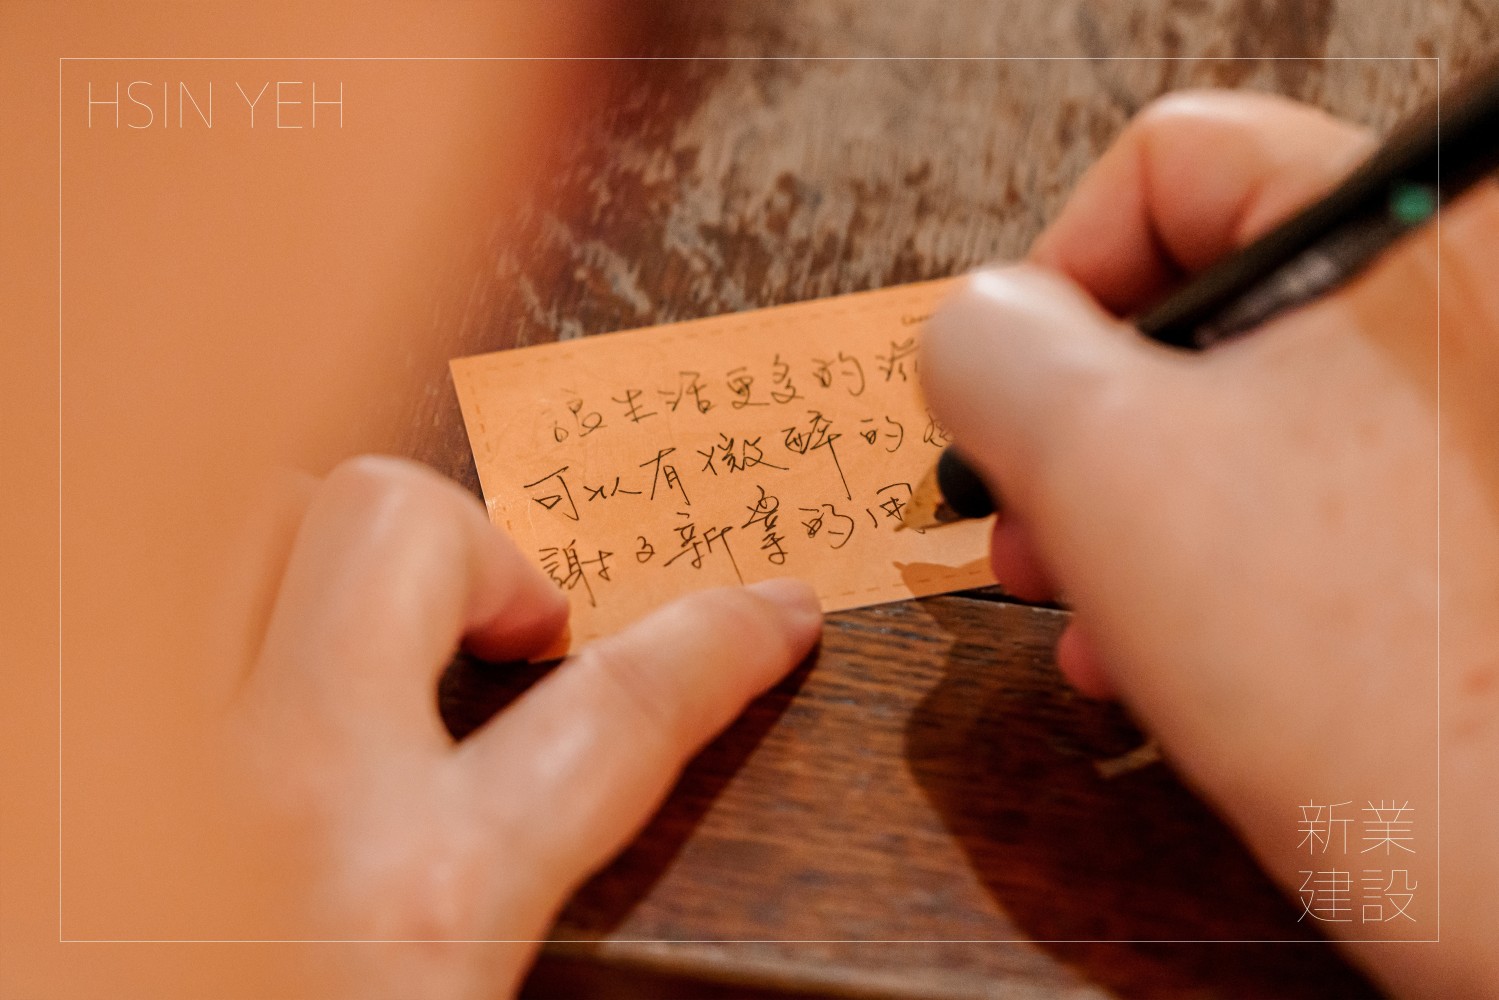 HSIN YEH
讓生活更多的
可以有微醉的
謝謝新業的用
新業
建設